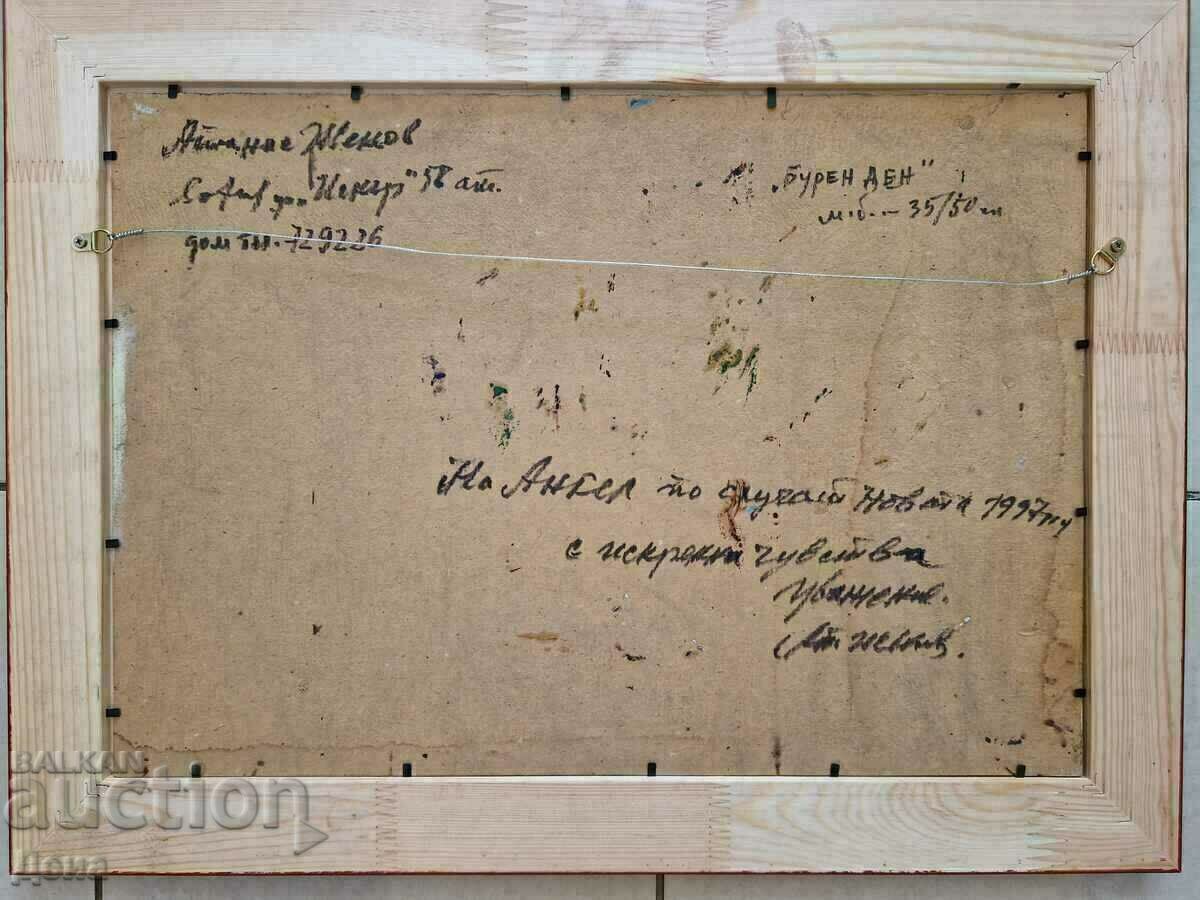 Атанас Женов
София ул. "Искър" 58 ат.
дом тел. 729226
"БУРЕН ДЕН"
м.б. - 35/50 см
На Ангел по случай Новата 1997 г
с искрени чувства
Уважение.
Ат. Женов.
BALKAN
auction
Дона